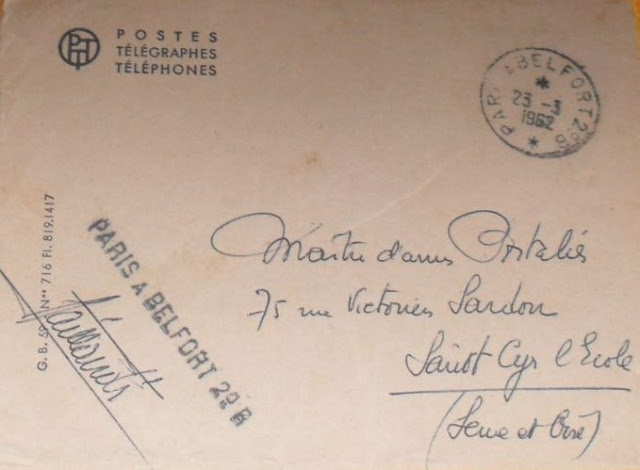 PTT
POSTES
TÉLÉGRAPHES
TÉLÉPHONES
PARIS A BELFORT 2°B
23 -3
1962
G. B. 59 N** 716 Fl. 819.1417
PARIS A BELFORT 2° B
Maître d'armes Portaliés
75 rue Victorien Sardou
Saint Cyr l'Ecole
(Seine et Oise)